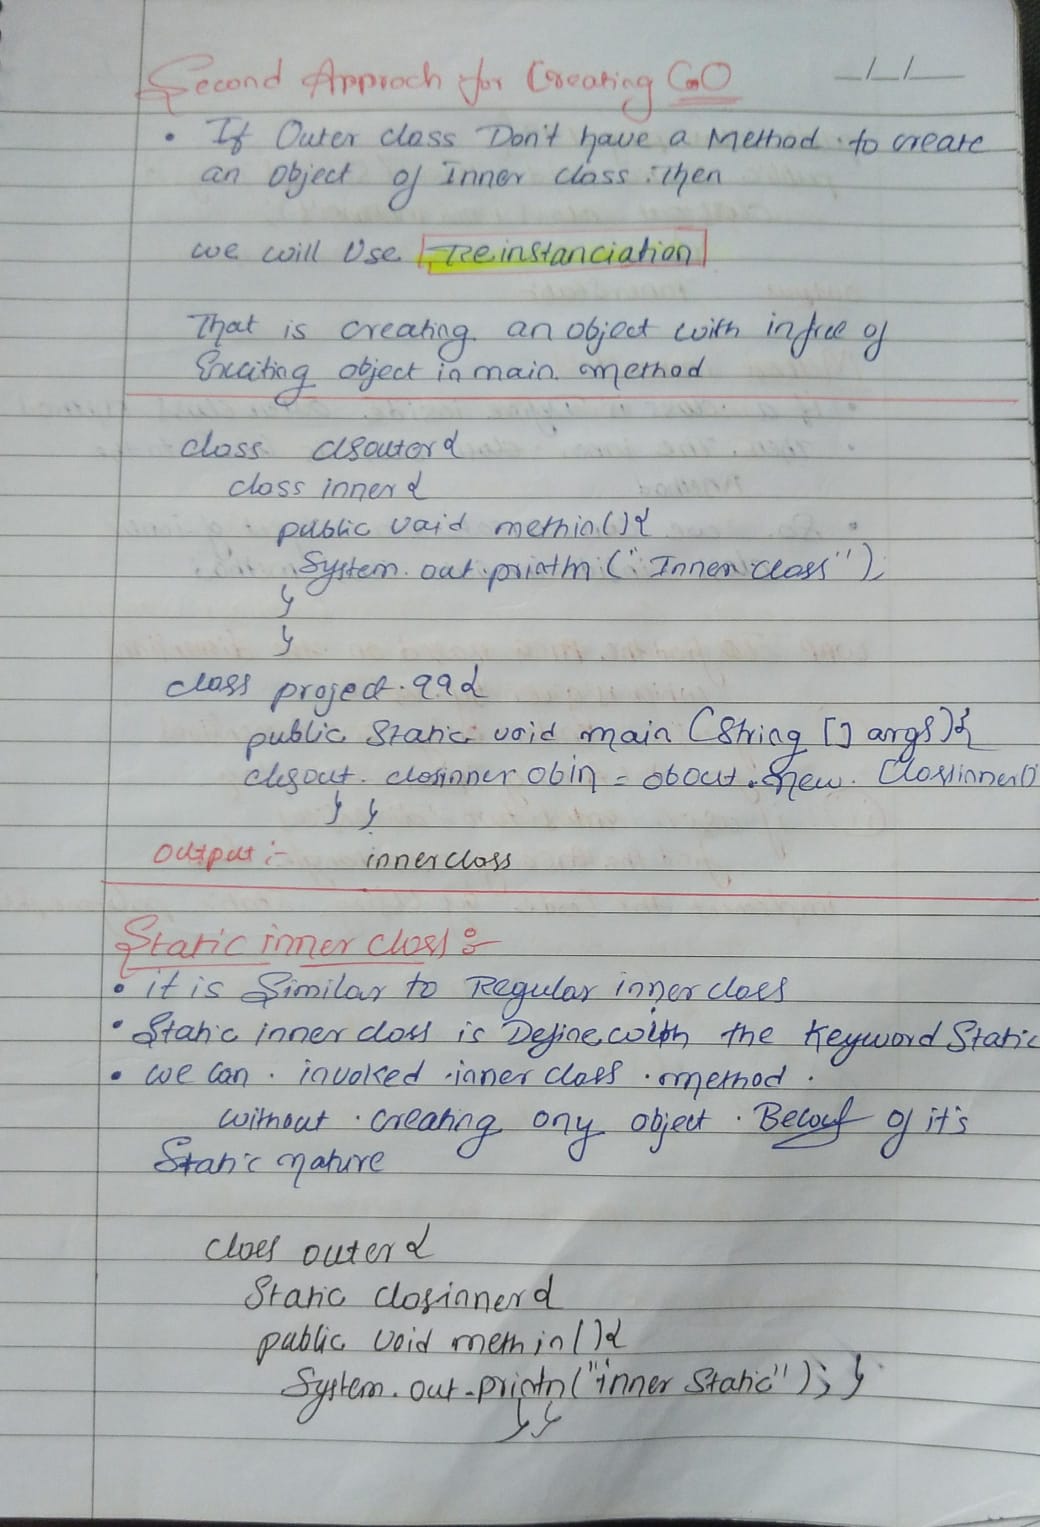 Second Approch for Creating
_/_/__
• If Outer class Don't have a Method to create
an object of inner class then
we will Use Reinstanciation
That is creating an object with of
Exciting object in main method
class clsouter{
class inner{
public void methin(){
System.out.println("Inner class");
}
}
class project.99{
public static void main (String [] args){
clsout.clasinner obin = obout.new.Classinner()
} }
output :- inner class
Static inner class :-
• it is Similar to Regular inner class
• Static inner class is Define with the Keyword Static
• we can invoked inner class method
without creating any object of it's
Static nature
class outer{
Static clasinner{
public void methin(){
System.out.println("inner Static"); }
}}